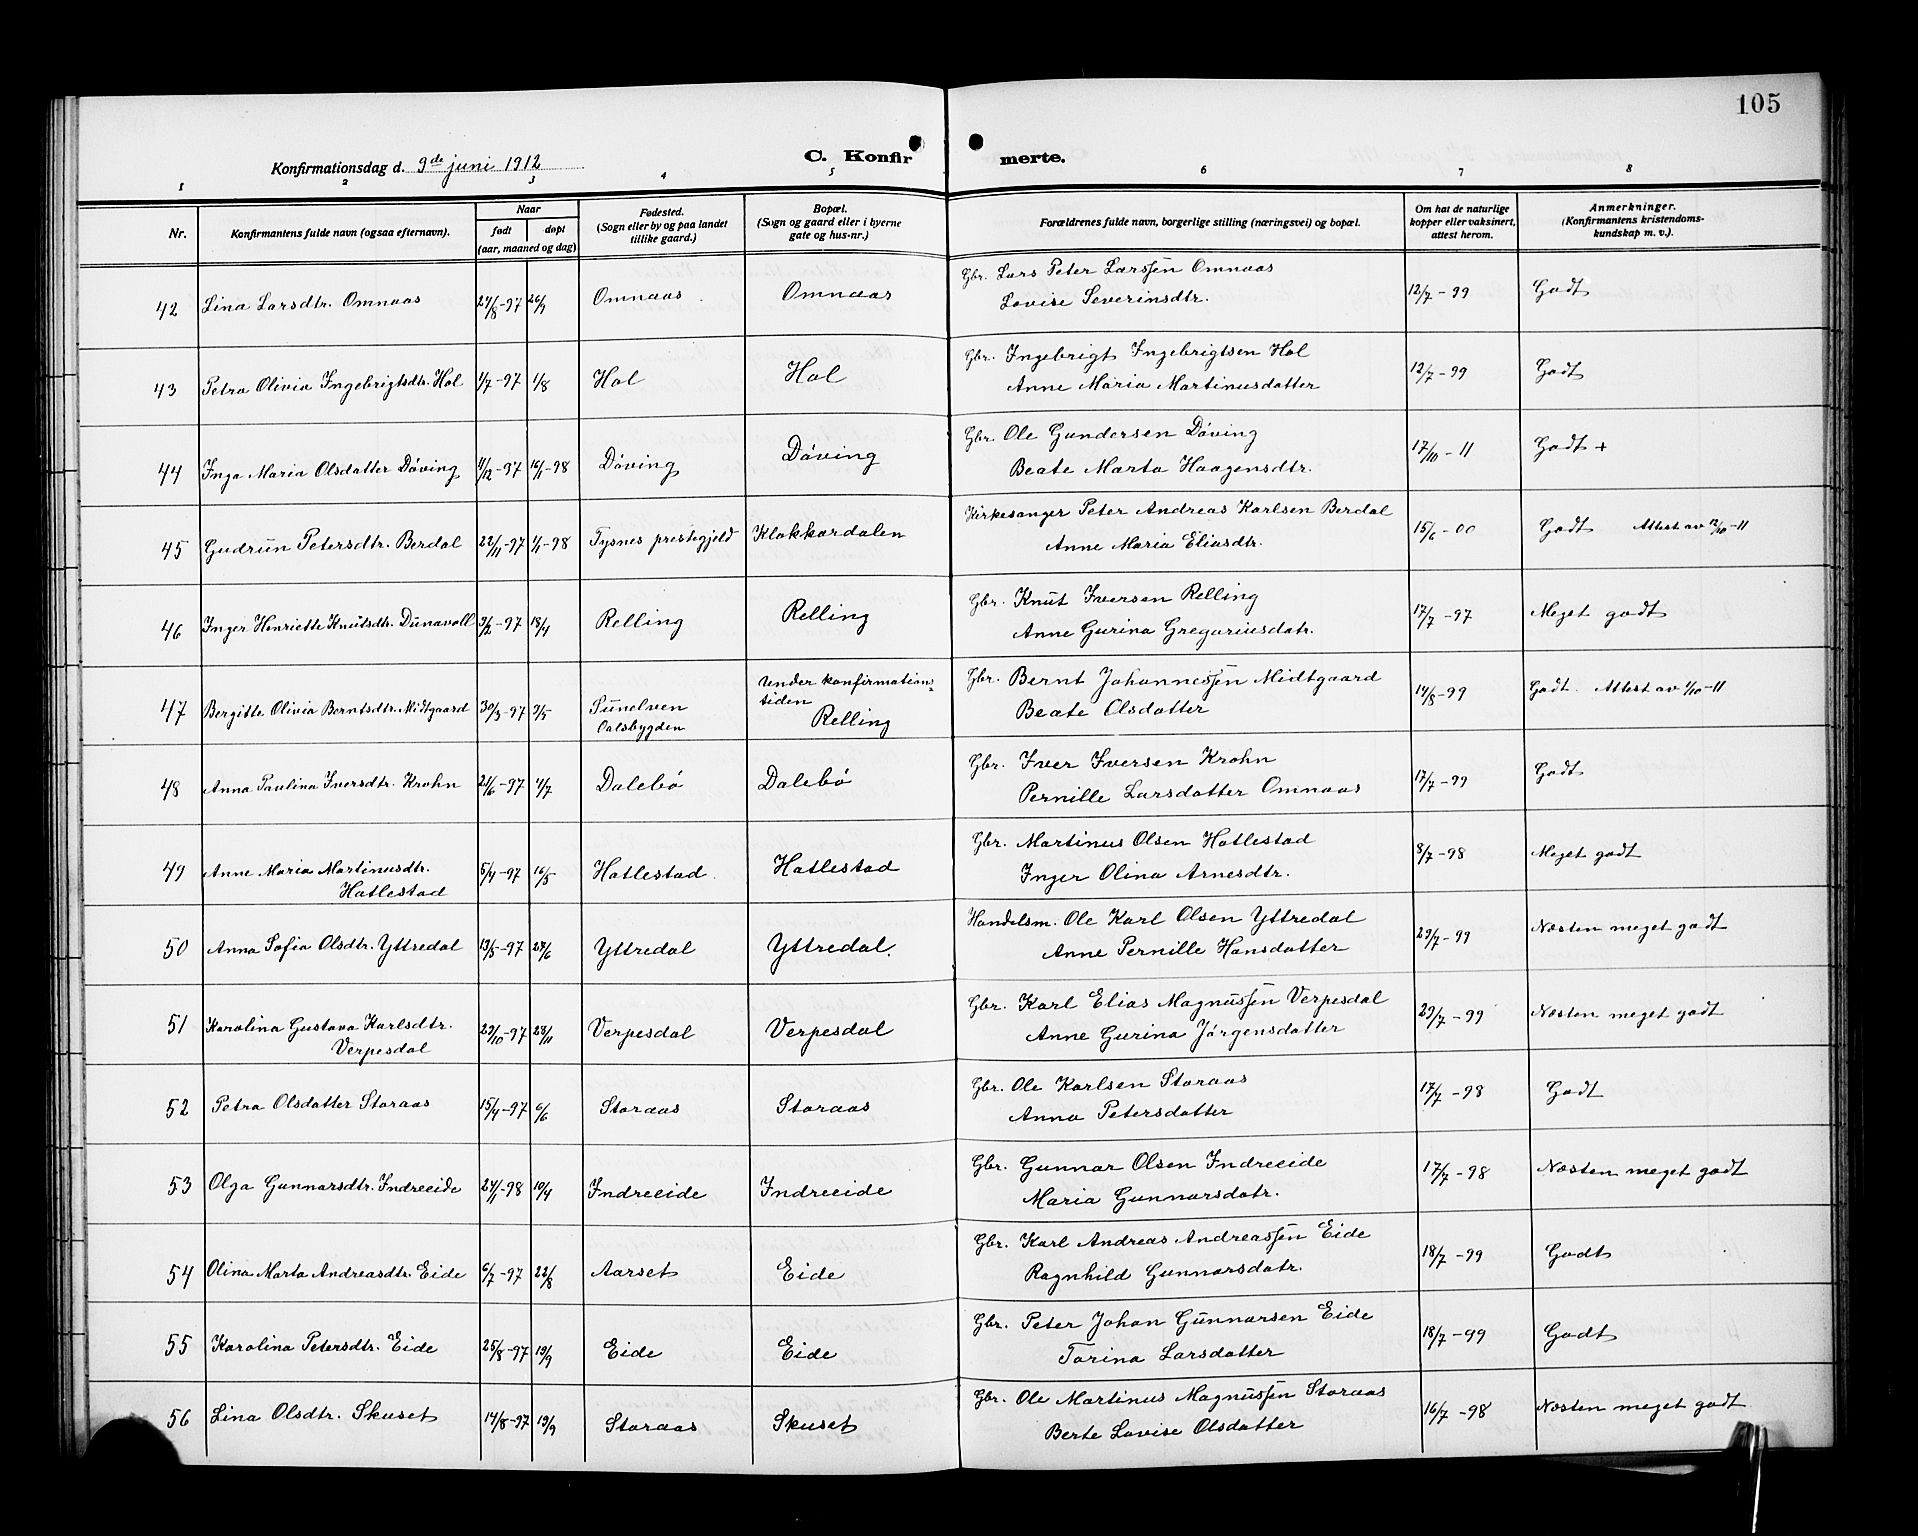 105
Konfirmationsdag d. 9de juni 1912
C. Konfirmerte.
1 2 3 4 5 6 7 8
Nr.
Konfirmantens fulde navn (ogsaa efternavn).
Naar
født
døpt
(aar, maaned og dag)
Fødested.
(Sogn eller by og paa landet
tillike gaard.)
Bopæl.
(Sogn og gaard eller i byerne
gate og hus-nr.)
Forældrenes fulde navn, borgerlige stilling (næringsvei) og bopæl.
Om hat de naturlige
kopper eller vaksinert,
attest herom.
Anmerkninger.
(Konfirmantens kristendoms-
kundskap m. v.).
42 Lina Larsdtr. Omnaas 24/8-97 26/9 Omnaas Omnaas Gbr. Lars Peter Larssen Omnaas 12/7-99 Godt
Lovise Severinsdtr.
43 Petra Olivia Ingebrigtsdtr. Hol 1/7-97 1/8 Hol Hol Gbr. Ingebrigt Ingebrigtsen Hol 12/7-99 Godt
Anne Maria Martinusdatter
44 Inga Maria Olsdatter Døving 4/12-97 16/1-98 Døving Døving Gbr. Ole Gundersen Døving 17/10-11 Godt +
Beate Marta Haagensdtr.
45 Gudrun Petersdtr. Berdal 22/11-97 1/1-98 Tysnes prestegjeld Klokkardalen Kirkesanger Peter Andreas Karlsen Berdal 15/6-00 Godt Attest av 12/10-11
Anne Maria Eliasdtr.
46 Inger Henriette Knutsdtr. Dunavoll 3/2-97 18/4 Relling Relling Gbr. Knut Iversen Relling 17/7-97 Meget godt
Anne Gurina Gregoriusdatr.
47 Bergitte Olivia Berntsdtr. Midtgaard 30/3-97 9/5 Sunelven Under konfirmations- Gbr. Bernt Johannessen Midtgaard 14/8-99 Godt. Attest av 1/10-11
Oalsbygden tiden Relling Beate Olsdatter
48 Anna Paulina Iversdtr. Krohn 21/6-97 4/7 Dalebø Dalebø Gbr. Iver Iversen Krohn 17/7-99 Godt
Pernille Larsdatter Omnaas
49 Anne Maria Martinusdtr. 5/4-97 16/5 Hatlestad Hatlestad Gbr. Martinus Olsen Hatlestad 8/7-98 Meget godt
Hatlestad Inger Olina Arnesdtr.
50 Anna Sofia Olsdtr. Yttredal 13/5-97 27/6 Yttredal Yttredal. Handelsm. Ole Karl Olsen Yttredal 29/7-99 Næsten meget godt
Anne Pernille Hansdatter
51 Karolina Gustava Karlsdtr. 29/10-97 28/11 Verpesdal Verpesdal Gbr. Karl Elias Magnussen Verpesdal 29/7-99 Næsten meget godt
Verpesdal Anne Gurina Jørgensdatter
52 Petra Olsdatter Storaas 15/4-97 6/6 Storaas Storaas Gbr. Ole Karlsen Storaas 17/7-98 Godt
Anna Petersdatter
53 Olga Gunnarsdtr. Indreeide 24/1-98 10/4 Indreeide Indreeide Gbr. Gunnar Olsen Indreeide 17/7-98 Næsten meget godt
Maria Gunnarsdatr.
54 Olina Marta Andreasdtr. Eide 6/7-97 22/8 Aarset Eide Gbr. Karl Andreas Andreassen Eide 18/7-99 Godt
Ragnhild Gunnarsdatr.
55 Karolina Petersdtr. Eide 25/8-97 19/9 Eide Eide Gbr. Peter Johan Gunnarsen Eide 18/7-99 Godt
Torina Larsdatter
56 Lina Olsdtr. Skuset 14/8-97 19/9 Storaas Skuset Gbr. Ole Martinus Magnussen Storaas 16/7-98 Næsten meget godt
Berte Lovise Olsdatter